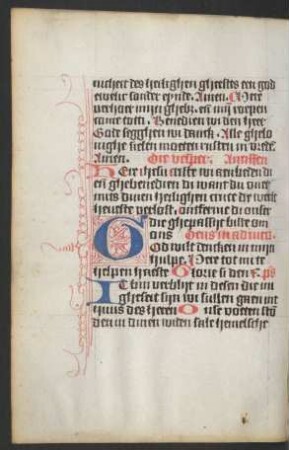 nicheit des heilighen gheestes een god
ewelic sonder eynde. Amen. Here
verhoer mijn ghebet. en mij roepen
come totti. Benedien wi den here
God segghen wi danck. Alle ghelo
vighe sielen moeten rusten in vrede
Amen. Die vesper. Antiffen
Here ihesu criste wi aenbeden di
en ghebenedien di want du over
mits dinen heilighen cruce die werlt
heveste verlost. ontferme di onser
die ghepassijt biste om
ons Deus in adiuto.
God wilt dencken in mijn
hulpe. Here tot mi te
helpen haeste Glorie si den v. ps
Ic bin verblijt in desen die mi
gheseit sijn wi sullen gaen int
huus des heren Onse voeten stō
den in dinen